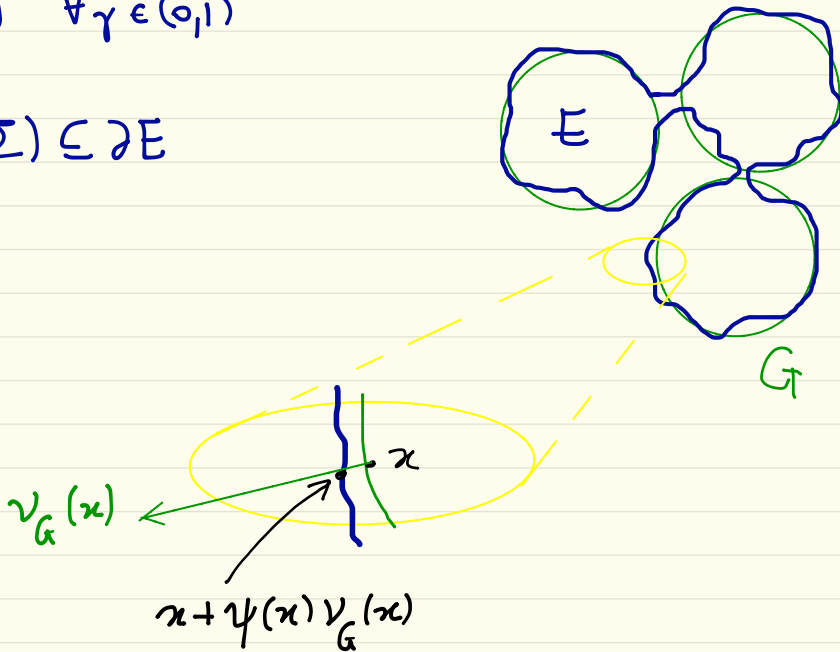 ∀γ ∈ (0,1)
Σ) ⊆ ∂E
E
G
x
ν_G(x)
x + ψ(x) ν_G(x)